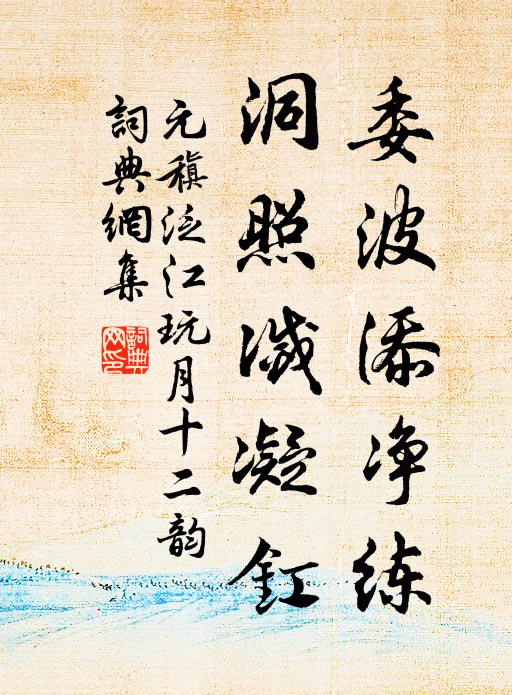 委波添净练
洞照滅凝釭
元稹泛江玩月十二韵
詞典網集
詞典網印